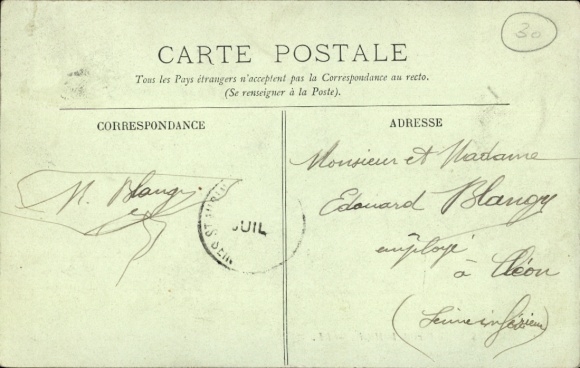 30
CARTE POSTALE
Tous les Pays étrangers n'acceptent pas la Correspondance au recto.
(Se renseigner à la Poste).
CORRESPONDANCE
ADRESSE
Monsieur et Madame
Edouard Blangy
employé
à Cléon
(Seine inférieure)
M. Blangy
JUIL